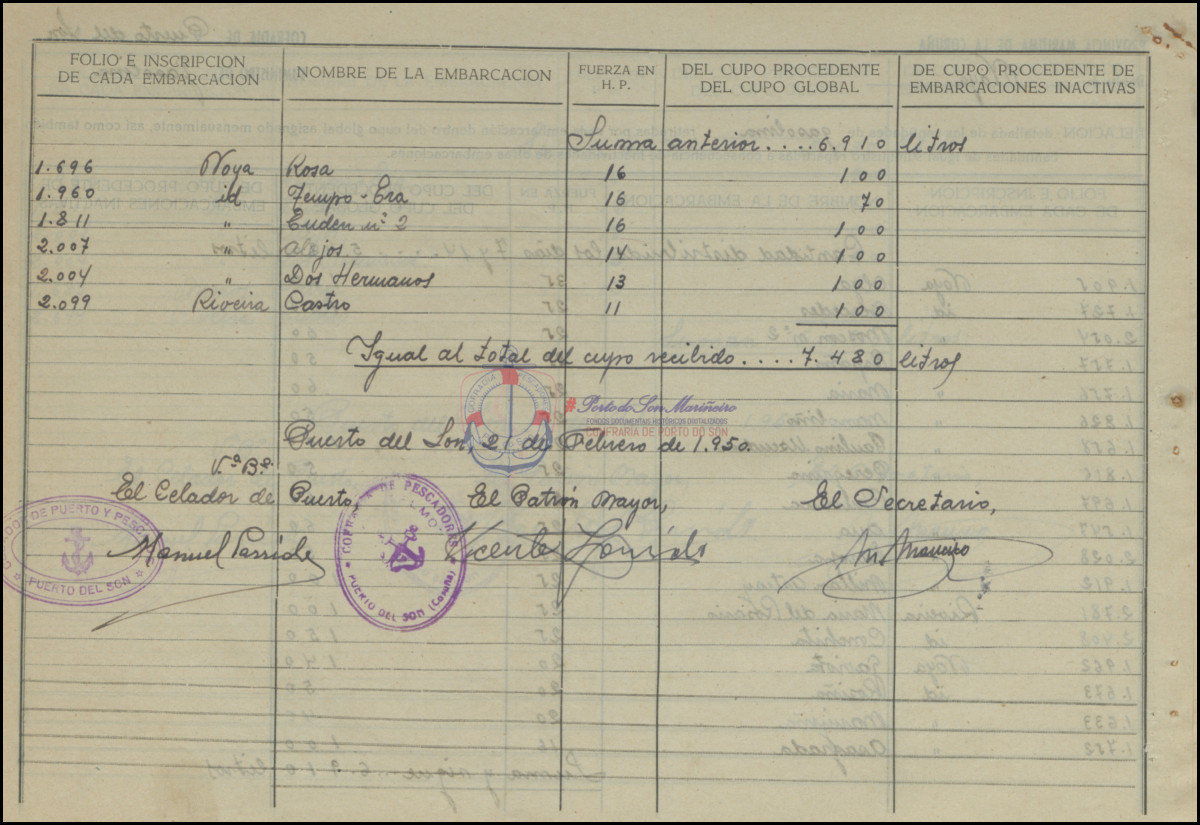 FOLIO E INSCRIPCION DE CADA EMBARCACION NOMBRE DE LA EMBARCACION FUERZA EN H. P. DEL CUPO PROCEDENTE DEL CUPO GLOBAL DE CUPO PROCEDENTE DE EMBARCACIONES INACTIVAS
Suma anterior....6.910 litros
1.696 Noya Rosa 16 100
1.960 id Tempo-Era 16 70
1.811 " Euden nº 2 16 100
2.007 " Alajos 14 100
2.004 " Dos Hermanos 13 100
2.099 Riveira Castro 11 100
Igual al total del cupo recibido....7.480 litros
COFRADIA PESCADORES
#Porto do Son Mariñeiro
FONDOS DOCUMENTAIS HISTÓRICOS DIXITALIZADOS
CONFRARIA DE PORTO DO SON
Puerto del Son, 21 de Febrero de 1.950.
Vº Bº
El Celador de Puerto, El Patrón Mayor, El Secretario,
DE PUERTO Y PESCA
PUERTO DEL SON
COFRADIA DE PESCADORES
PUERTO DEL SON (Coruña)
Manuel Vicente